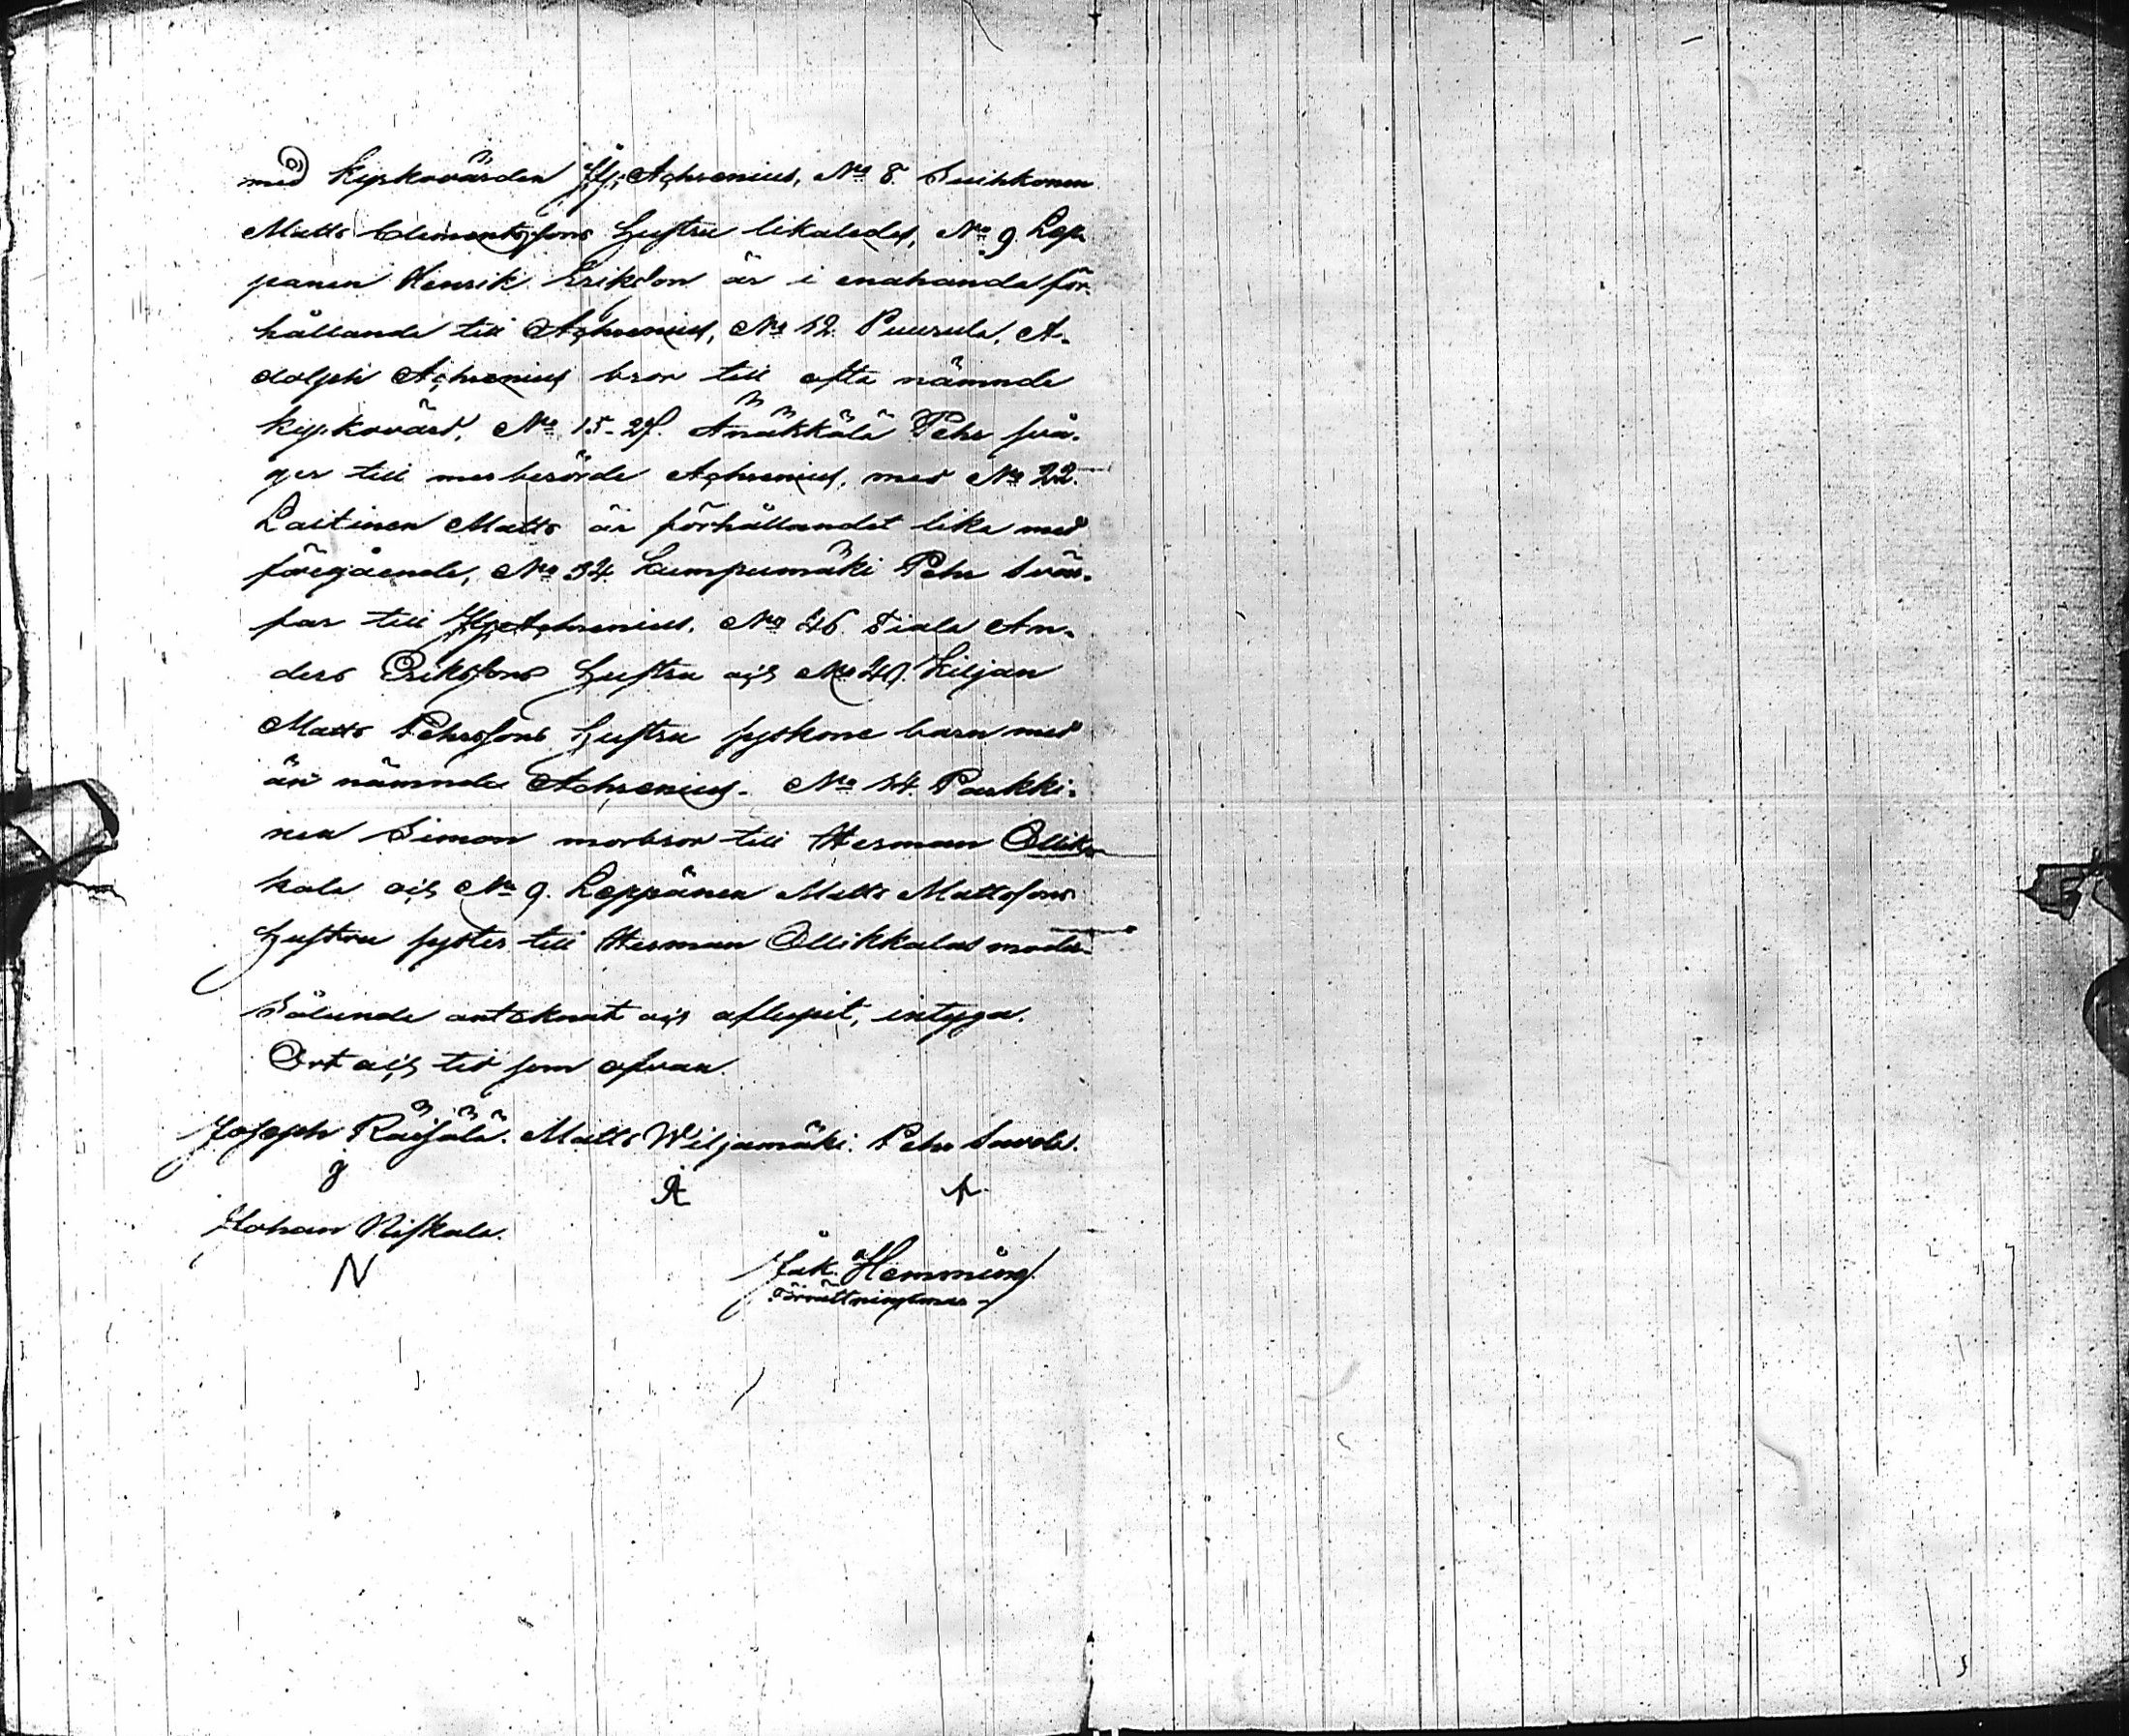 med kyrkovärden Hj: Achrenius, No 8. Suihkonen
Matts Clementssons hustru likaledes, No 9. Lep-
panen Henrik Eriksson är i enahanda för-
hållande till Achrenius, No 12. Puurula, A-
dolph Achrenius bror till ofta nämnde
kyrkovärd, No 15-27. Änäkkälä Pehr svå-
ger till merberörde Achrenius, med No 22.
Laitinen Matts är förhållandet lika med
föregående, No 34. Kumpumäki Pehr Svär-
far till Hj. Achrenius. No 46. Tiala An-
ders Erikssons hustru och No 49. Kiljan
Matts Pehrssons hustru syskone barn med
än nämnde Achrenius. No 14. Parkki-
nen Simon morbror till Herman Ollik-
kala och No 9. Leppänen Matts Mattssons
hustru syster till Herman Ollikkalas moder.
Sålunde anteknat och aflupit, intyga.
Ort och tid som ofvan
Joseph Räisälä. Matts Wiljamäki. Pehr Savola.
Johan Niskala.
N
Jak. Hemming
Förrättningsman